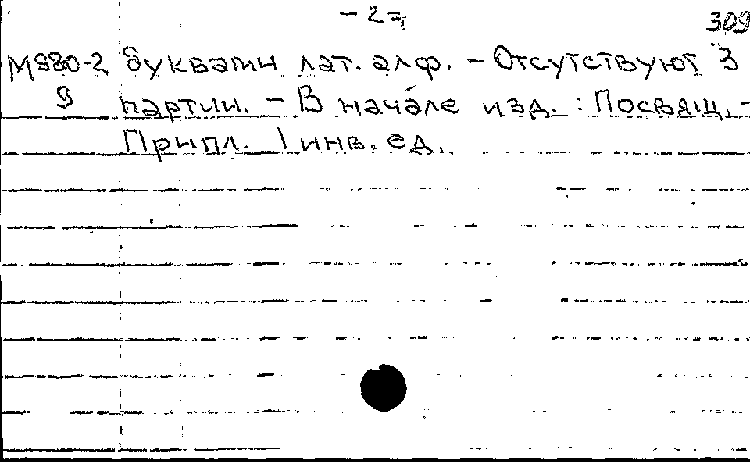 -2- 309
М980-2 буквами лат. алф. - Отсутствуют 3
9 партии. - В начале изд.: Посвящ. -
Припл. 1 инв. ед.